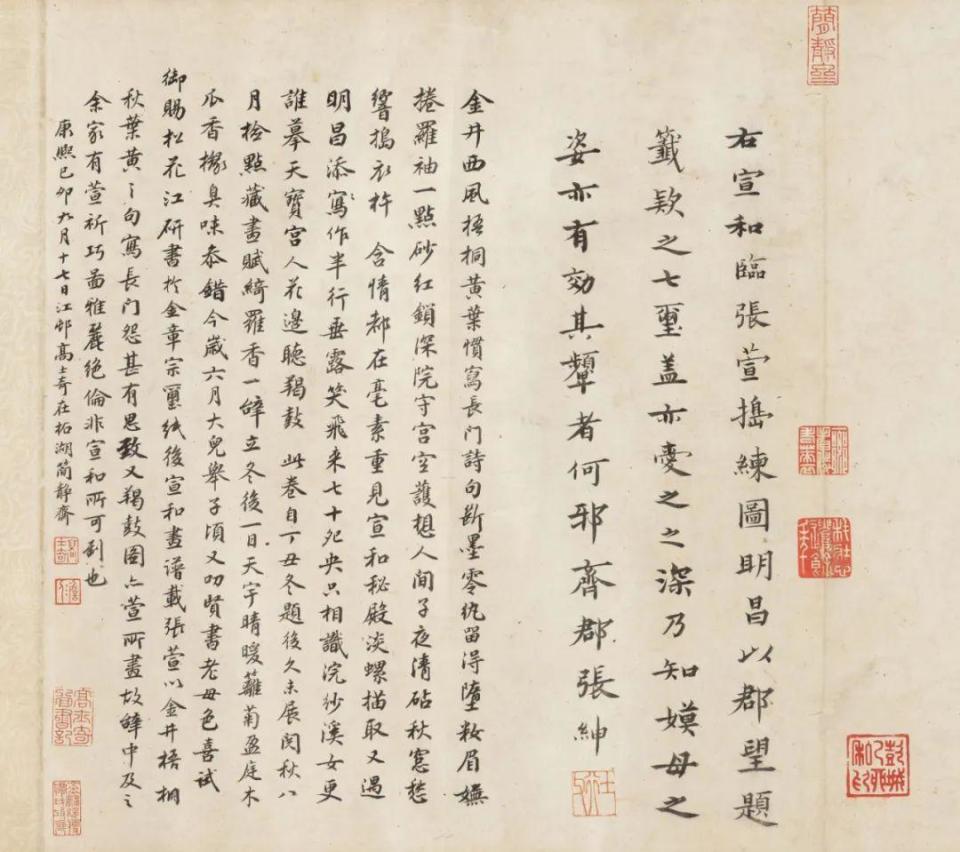 右宣和臨張萱搗練圖明昌以郡望題
籤欵之七璽盖亦愛之之深乃知嫫母之
姿亦有効其顰者何邪齊郡張紳
金井西風梧桐黃葉慣寫長門詩句斷墨零紈留得墮粧眉嫵
捲羅袖一點砂紅鎖深院守宮空護想人间子夜清砧秋窓愁
響搗衣杵 含情都在毫素重見宣和秘殿淡螺描取又遇
明昌添寫作半行垂露笑飛来七十夗央只相識浣紗溪女更
誰摹天寶宮人花邊聽羯鼓 此卷自丁丑冬題後久未展閱秋八
月撿點藏畫賦綺羅香一闋立冬後一日天宇晴暖籬菊盈庭木
瓜香櫞臭味参錯今歲六月大兒舉子頃又叨賢書老母色喜試
御賜松花江研書於金章宗璽紙後宣和畫譜載張萱以金井梧桐
秋葉黃之句寫長门怨甚有思致又羯鼓图亦萱所畫故闋中及之
余家有萱祈巧啚雅麗絕倫非宣和所可到也
康熙己卯九月十七日江邨高士奇在柘湖简静齋